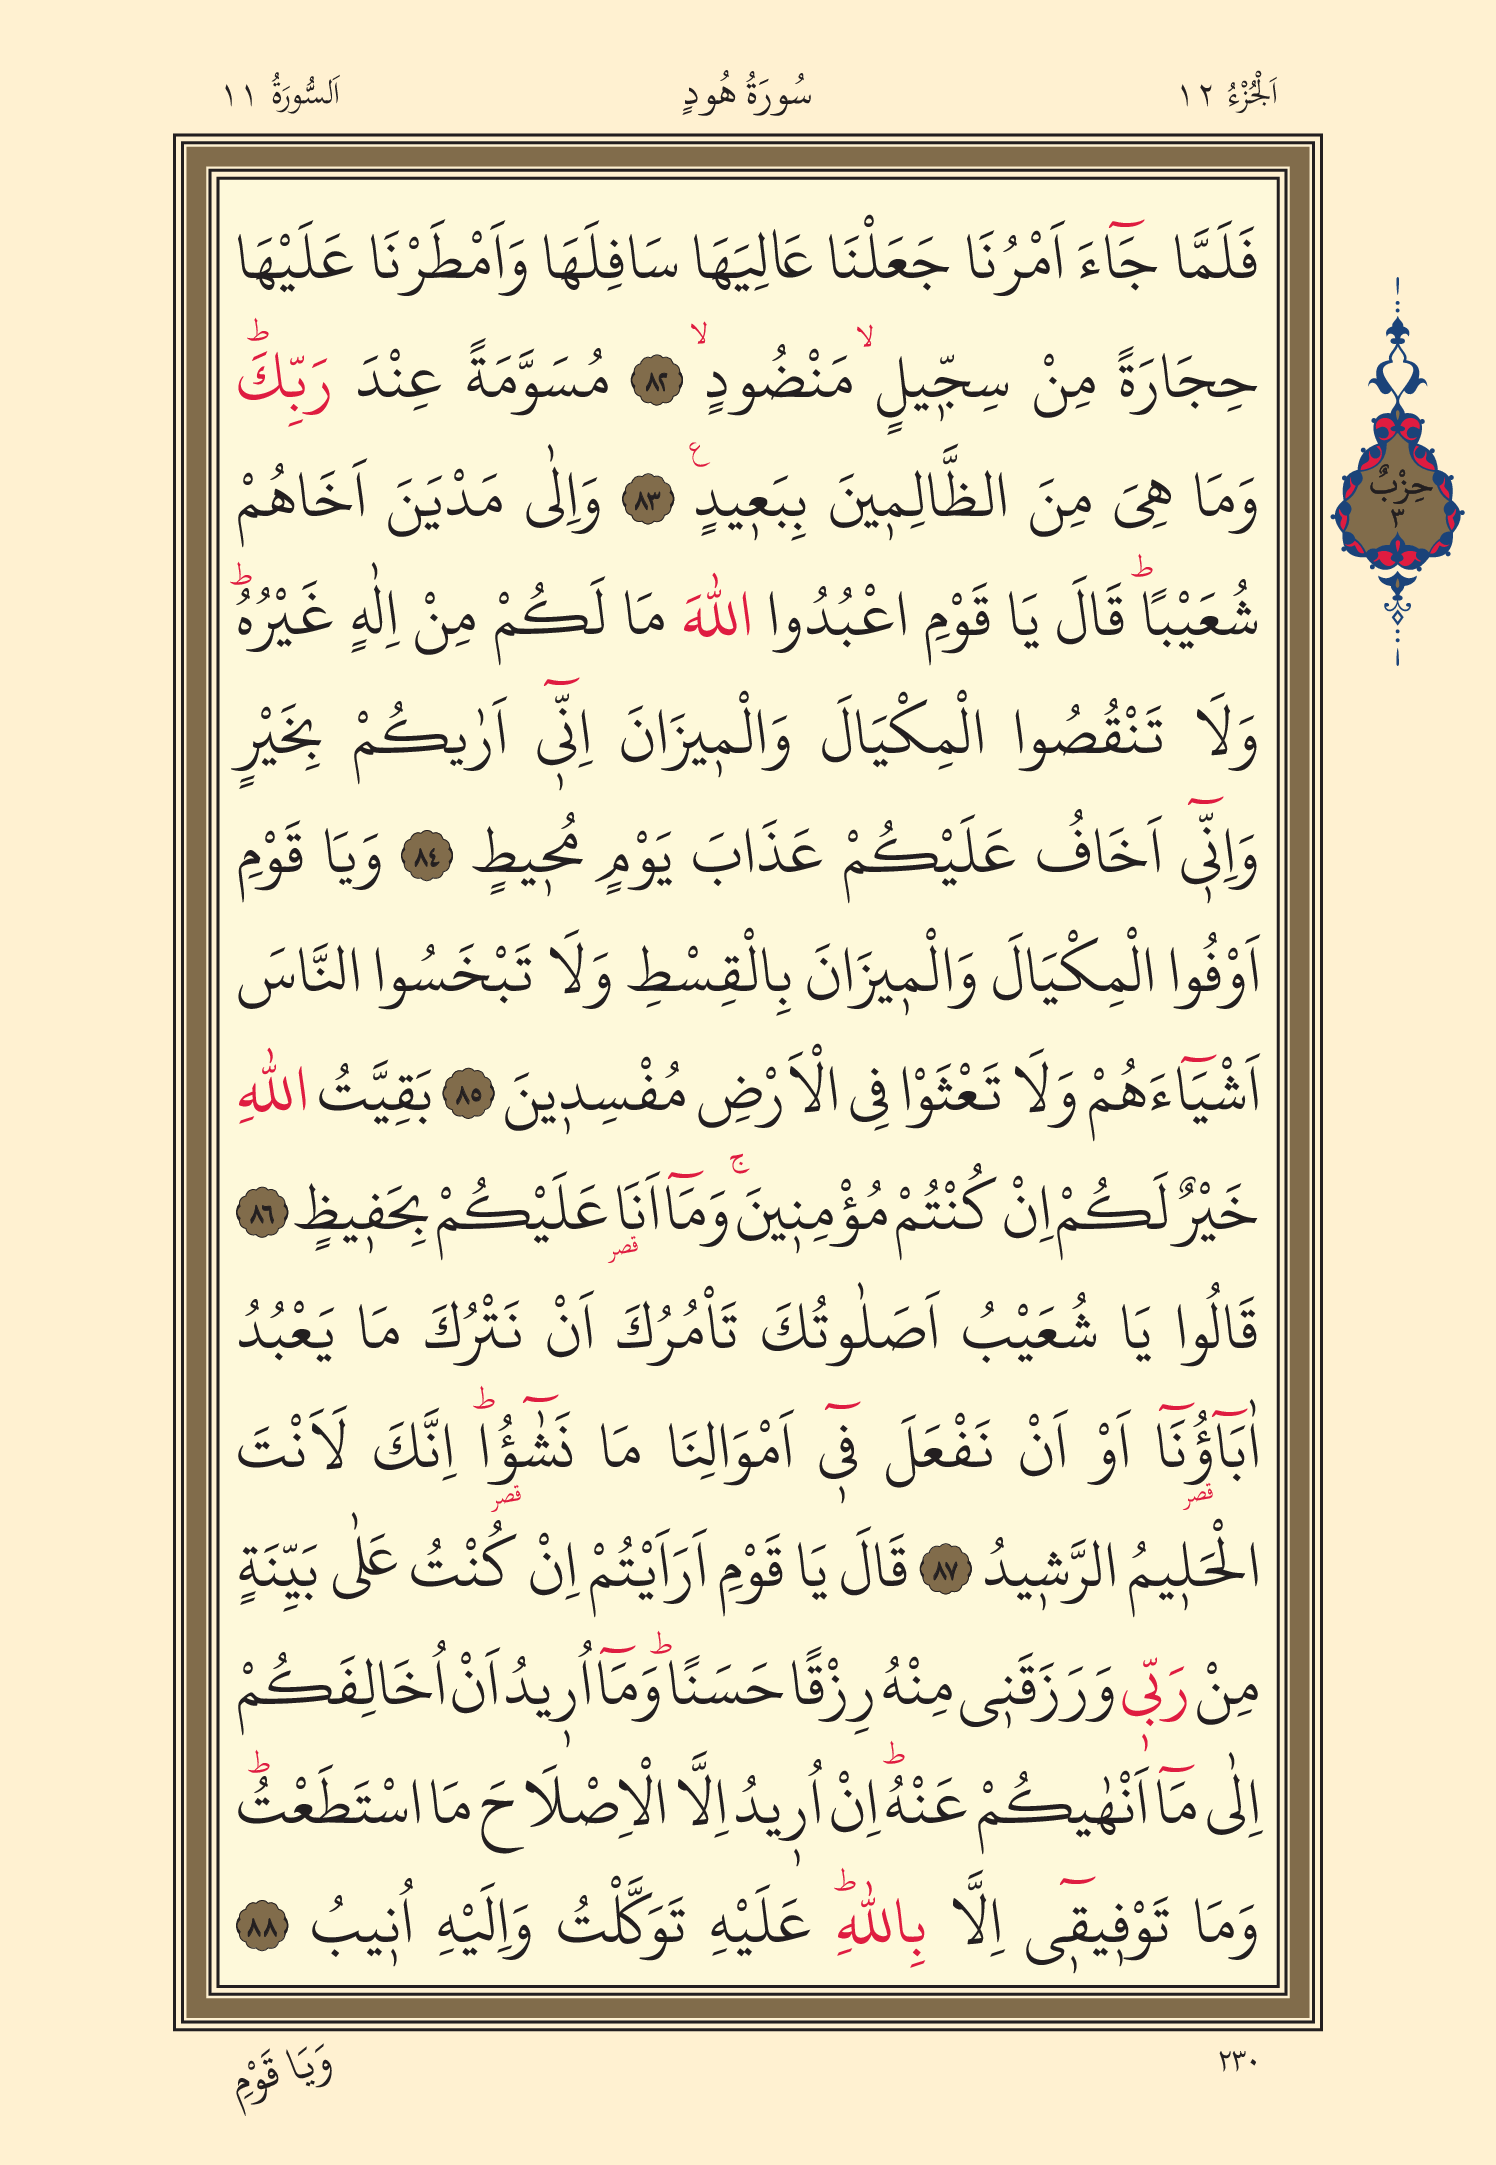 اَلْجُزْءُ ١٢
سُورَةُ هُودٍ
اَلسُّورَةُ ١١
فَلَمَّا جَٓاءَ اَمْرُنَا جَعَلْنَا عَالِيَهَا سَافِلَهَا وَاَمْطَرْنَا عَلَيْهَا
حِجَارَةً مِنْ سِجّ۪يلٍۙ مَنْضُودٍۙ ﴿٨٢﴾ مُسَوَّمَةً عِنْدَ رَبِّكَۜ
وَمَا هِىَ مِنَ الظَّالِم۪ينَ بِبَع۪يدٍ۟ ﴿٨٣﴾ وَاِلٰى مَدْيَنَ اَخَاهُمْ
شُعَيْبًاۜ قَالَ يَا قَوْمِ اعْبُدُوا اللّٰهَ مَا لَكُمْ مِنْ اِلٰهٍ غَيْرُهُۜ
وَلَا تَنْقُصُوا الْمِكْيَالَ وَالْم۪يزَانَ اِنّ۪ٓى اَرٰيكُمْ بِخَيْرٍ
وَاِنّ۪ٓى اَخَافُ عَلَيْكُمْ عَذَابَ يَوْمٍ مُح۪يطٍ ﴿٨٤﴾ وَيَا قَوْمِ
اَوْفُوا الْمِكْيَالَ وَالْم۪يزَانَ بِالْقِسْطِ وَلَا تَبْخَسُوا النَّاسَ
اَشْيَٓاءَهُمْ وَلَا تَعْثَوْا فِى الْاَرْضِ مُفْسِد۪ينَ ﴿٨٥﴾ بَقِيَّتُ اللّٰهِ
خَيْرٌ لَكُمْ اِنْ كُنْتُمْ مُؤْمِن۪ينَۚ وَمَٓا اَنَا۬ عَلَيْكُمْ بِحَف۪يظٍ ﴿٨٦﴾
قصر
قَالُوا يَا شُعَيْبُ اَصَلٰوتُكَ تَأْمُرُكَ اَنْ نَتْرُكَ مَا يَعْبُدُ
اٰبَٓاؤُ۬نَٓا اَوْ اَنْ نَفْعَلَ ف۪ٓى اَمْوَالِنَا مَا نَشٰٓؤُ۬اۜ اِنَّكَ لَاَنْتَ
قصر قصر
الْحَل۪يمُ الرَّش۪يدُ ﴿٨٧﴾ قَالَ يَا قَوْمِ اَرَاَيْتُمْ اِنْ كُنْتُ عَلٰى بَيِّنَةٍ
مِنْ رَبّ۪ى وَرَزَقَن۪ى مِنْهُ رِزْقًا حَسَنًاۜ وَمَٓا اُر۪يدُ اَنْ اُخَالِفَكُمْ
اِلٰى مَٓا اَنْهٰيكُمْ عَنْهُۜ اِنْ اُر۪يدُ اِلَّا الْاِصْلَاحَ مَا اسْتَطَعْتُۜ
وَمَا تَوْف۪يق۪ٓى اِلَّا بِاللّٰهِۜ عَلَيْهِ تَوَكَّلْتُ وَاِلَيْهِ اُن۪يبُ ﴿٨٨﴾
حِزْبٌ
٣
٢٣٠
وَيَا قَوْمِ